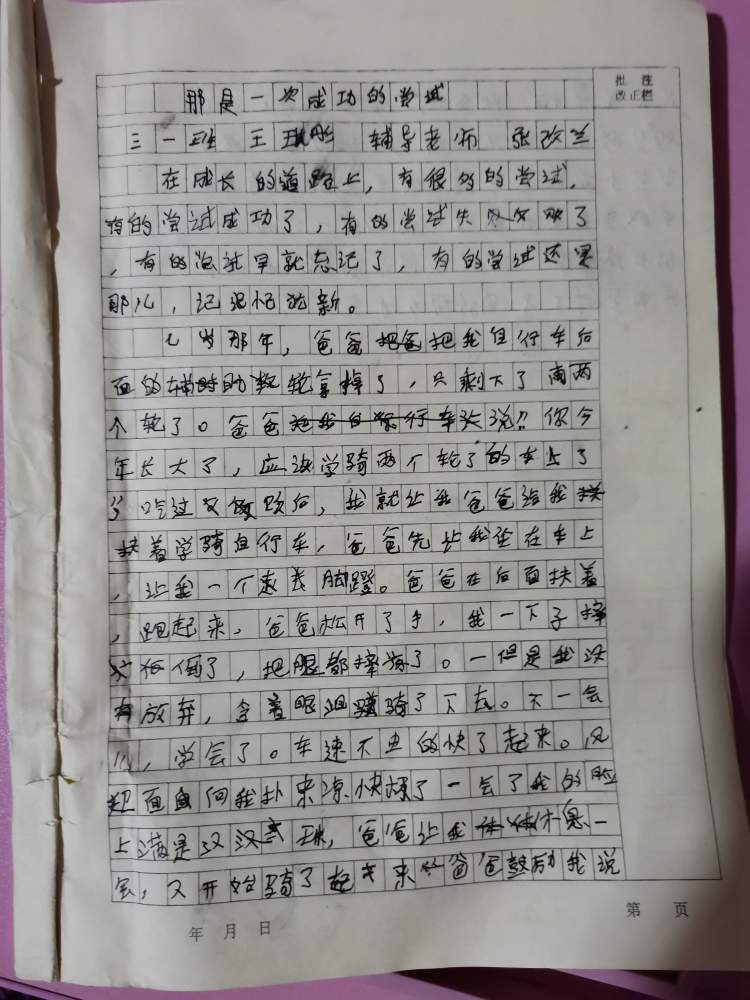 那是一次成功的尝试
批注
改正栏
三一班 王 辅导老师 张改兰
在成长的道路上，有很多的尝试，
有的尝试成功了，有的尝试失败了
，有的尝试早就忘记了，有的尝试还
那儿，记忆犹新。
七岁那年，爸爸把我自行车后
面的辅助轮拿掉了，只剩下了两
个轮了。爸爸说："你今
年长大了，应该学骑两个轮子的车了
吃过饭后，我就让我爸爸给我
扶着学骑自行车，爸爸先让我坐在车上
，让我一个走去脚蹬。爸爸在后面扶着
，跑起来，爸爸松开了手，我一下子摔
倒了，把腿都摔 了。一但是我没
有放弃，含着眼泪骑了下去。不一会
儿，学会了。车速不 的快了起来。风
迎面向我扑来凉快 了一会了我的脸
上满是汉 珠，爸爸让我休息一
会，又开始骑了起来 爸爸鼓励我说
年 月 日
第 页